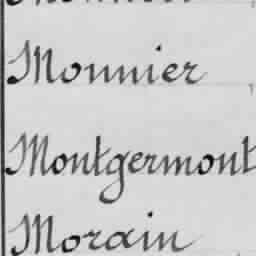 Monnier
Montgermont
Morain